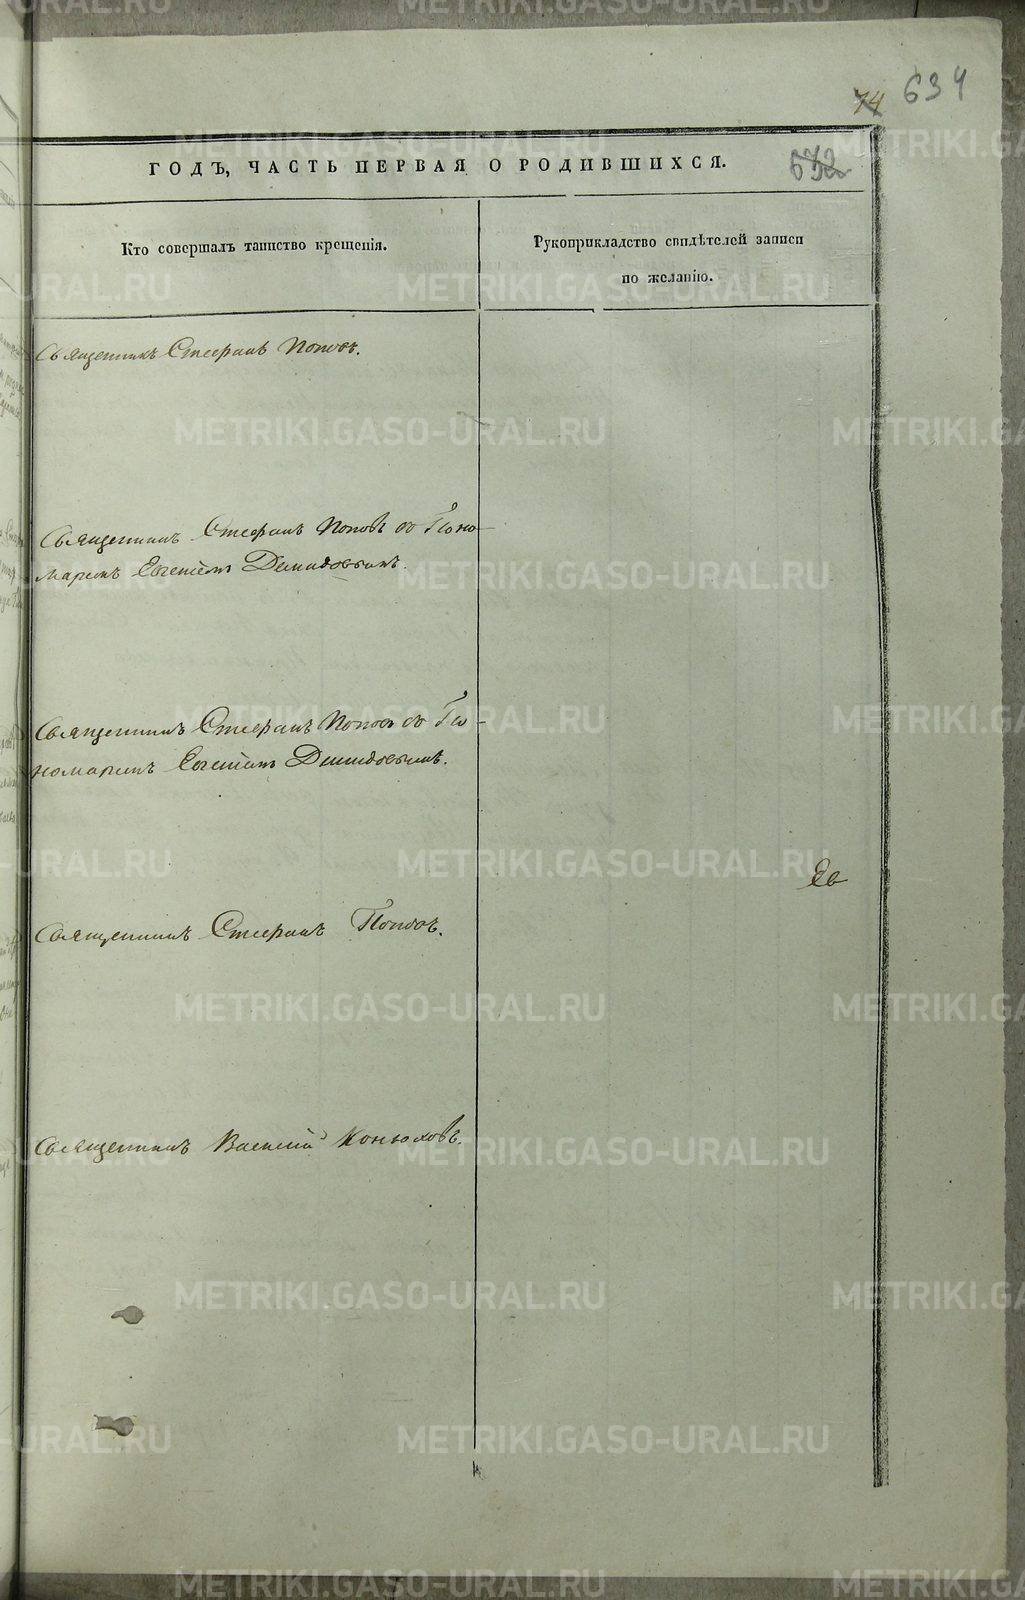 74 634
ГОДЪ, ЧАСТЬ ПЕРВАЯ О РОДИВШИХСЯ.
632
Кто совершалъ таинство крещенія.
Рукоприкладство свидѣтелей записи
по желанію.
Священникъ Стефанъ Поповъ.
Священникъ Стефанъ Поповъ съ Поно-
маремъ Евгеніемъ Демидовымъ.
Священникъ Стефанъ Поповъ съ По-
номаремъ Евгеніемъ Демидовымъ.
Священникъ Стефанъ Поповъ.
Священникъ Василій Конюховъ.
METRIKI.GASO-URAL.RU